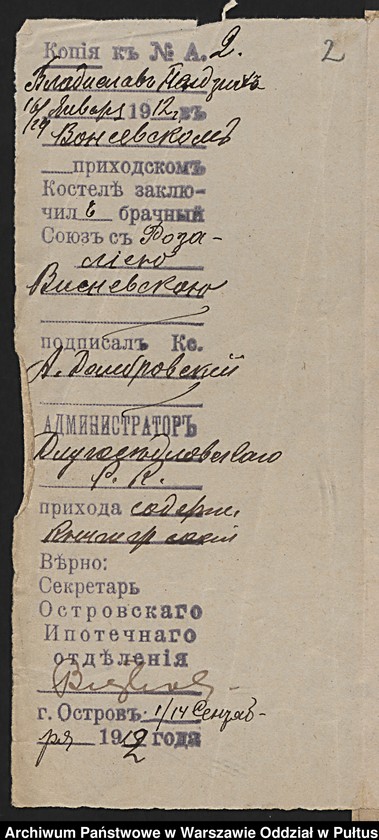 Копія къ № А. 2.
2
Владиславъ
16/29 Января 1912 г. въ
Вонсевскомъ
приходскомъ
Костелѣ заклю-
чилъ брачный
Союзъ съ Роза-
ліею
Висневскою
подписалъ Кс.
А. Домбровскій
АДМИНИСТРАТОРЪ
Длугоседловскаго
Р. К.
прихода содерж.
Вѣрно:
Секретарь
Островскаго
Ипотечнаго
отдѣленія
г. Островъ 1/14 Сентяб-
ря 1912 года
Archiwum Państwowe w Warszawie Oddział w Pułtus